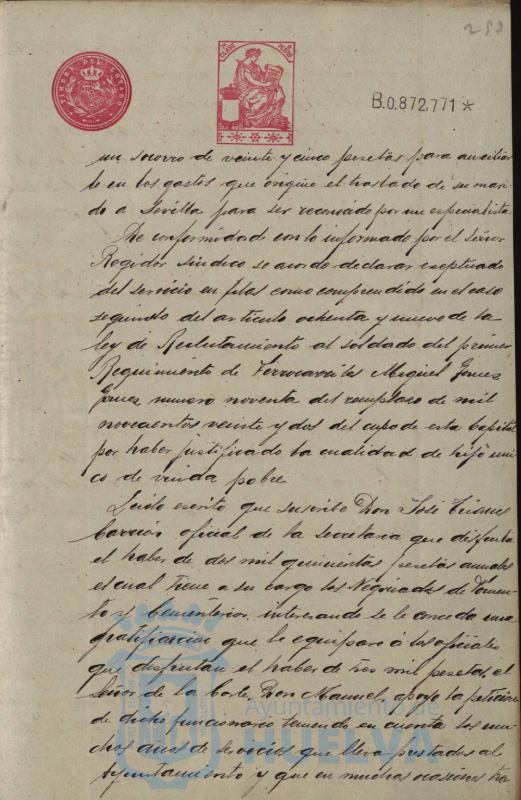 252
TIMBRE DEL ESTADO
B.0.872.771*
un socorro de veinte y cinco pesetas para auxiliar
le en los gastos que origine el traslado de su mari
do a Sevilla para ser reconocido por un especialista
De conformidad con lo informado por el Señor
Regidor Síndico se acordo declarar exceptuado
del servicio en filas como comprendido en el caso
segundo del articulo ochenta y nueve de la
ley de Reclutamiento al soldado del primer
Regimiento de Ferrocarriles Miguel Gomez
Gomez numero noventa del remplazo de mil
novecientos veinte y dos del cupo de esta capital
por haber justificado la cualidad de hijo uni
co de viuda pobre
Leido escrito que suscribe Don José
Carrión oficial de la secretaria que disfruta
el haber de dos mil quinientas pesetas anuales
el cual tiene a su cargo los Negociados de Fomen
to y Cementerios, interesando se le conceda una
gratificacion que le equipare á los oficiales
que disfrutan el haber de tres mil pesetas, el
Señor de la Corte, Don Manuel, apoya la peticion
de dicho funcionario teniendo en cuenta los mu
chos años de servicios que lleva prestados al
Ayuntamiento y que en muchas ocasiones
Ayuntamiento de
HUELVA